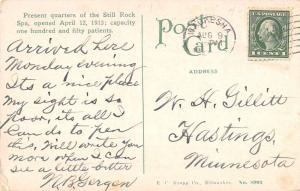 Present quarters of the Still Rock
Spa, opened April 12, 1913; capacity
one hundred and fifty patients.
Post Card
WAUKESHA
AUG 9
1 CENT 1
Arrived here
Monday evening
Its a nice place
My sight is so
poor, its all I
can do to pen
this, Will write you
more when I can
see a little better
N.B. Gergen
ADDRESS
W. H. Gillitt
Hastings,
Minnesota
E. C. Kropp Co., Milwaukee. No.